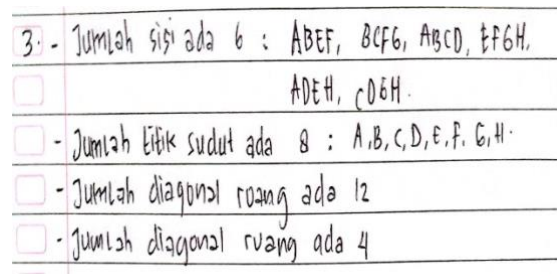 3. - Jumlah sisi ada 6 : ABEF, BCFG, ABCD, EFGH,
ADEH, CDGH.
- Jumlah titik sudut ada 8 : A,B,C,D,E,F,G,H.
- Jumlah diagonal roang ada 12
- Jumlah diagonal ruang ada 4